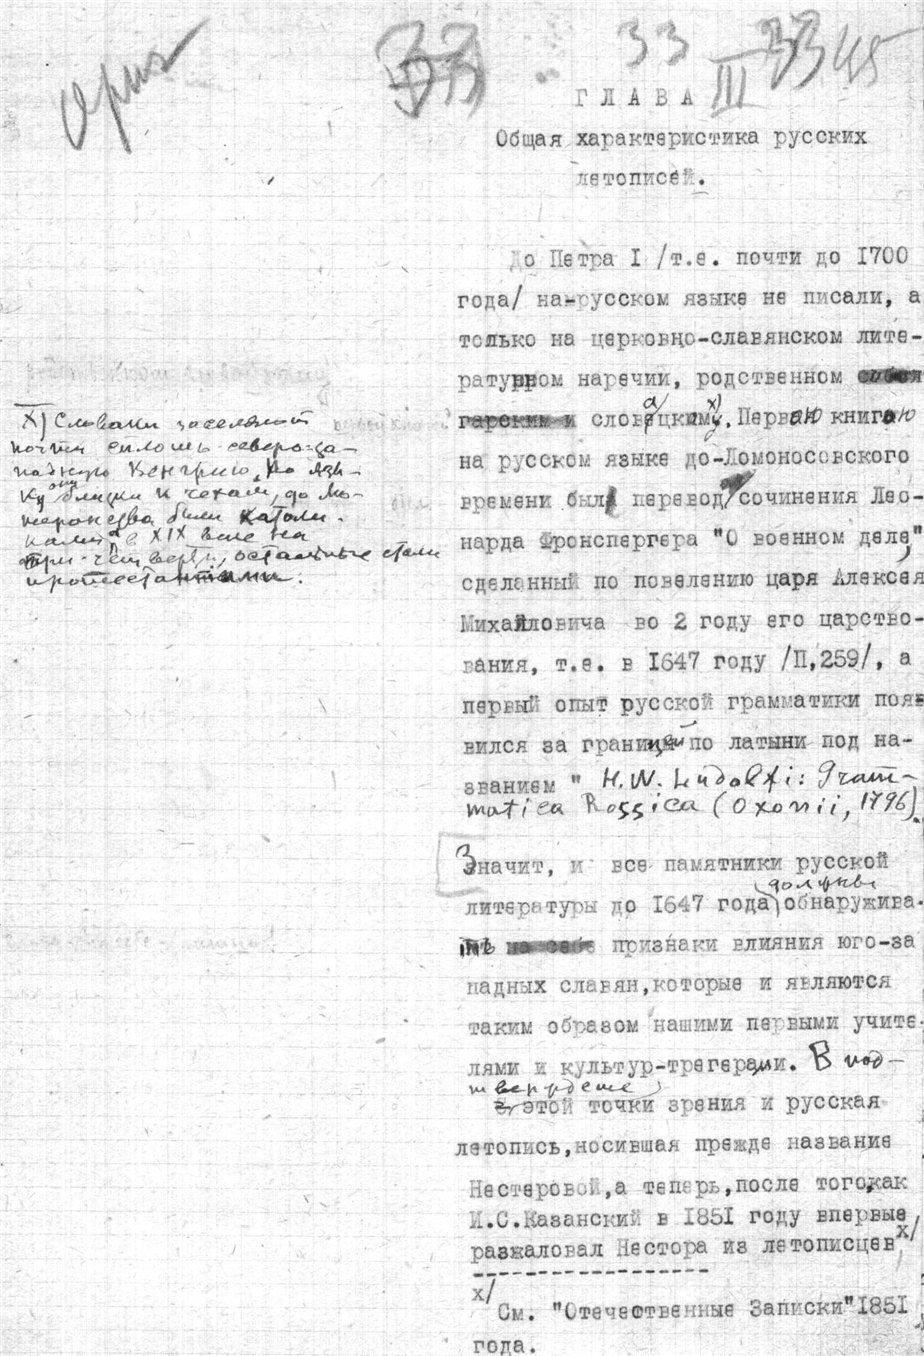 Ориг
33 33 33 45
ГЛАВА III
Общая характеристика русских
летописей.
До Петра I /т.е. почти до 1700
года/ на-русском языке не писали, а
только на церковно-славянском лите-
ратурном наречии, родственном
гарским и словацкому x). Первою книгою
на русском языке до-Ломоносовского
времени был перевод сочинения Лео-
нарда Фронспергера "О военном деле",
сделанный по повелению царя Алексея
Михайловича во 2 году его царство-
вания, т.е. в 1647 году /П,259/, а
первый опыт русской грамматики появ-
вился за границей по латыни под на-
званием " H.W. Ludolfi: Gram-
matica Rossica (Oxonii, 1796).
Значит, и все памятники русской
литературы до 1647 года должны обнаружива-
ть на себе признаки влияния юго-за
падных славян,которые и являются
таким образом нашими первыми учите-
лями и культур-трегерами. В под-
тверждение
этой точки зрения и русская
летопись,носившая прежде название
Нестеровой,а теперь,после того,как
И.С.Казанский в 1851 году впервые
разжаловал Нестора из летописцев x/
x/
См. "Отечественные Записки" 1851
года.
x) Словаки заселяют
почти сплошь северо-за-
падную Венгрию, по язы-
ку они близки к чехам, до
были католи-
ками, а в XIX веке на
три четверти, остальные стали
протестантами.